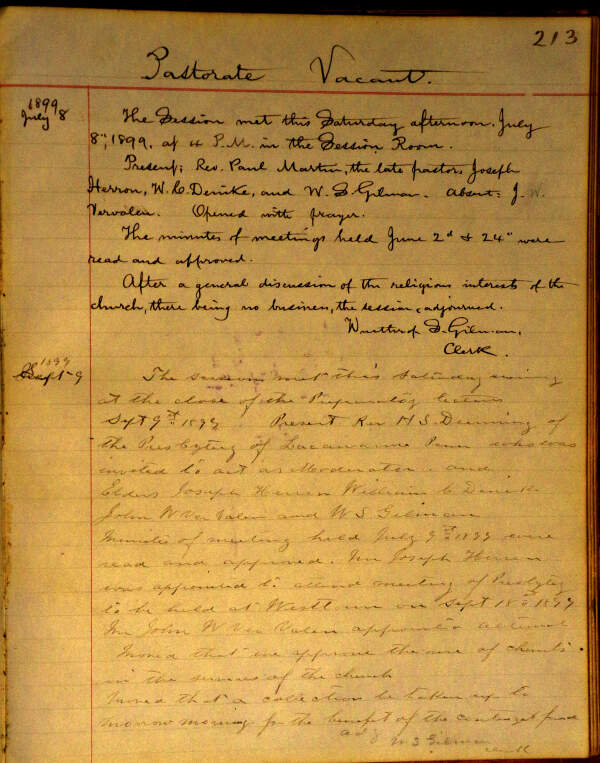 213
Pastorate Vacant.
1899
July 8
The Session met this Saturday afternoon, July
8", 1899, at 4 P.M. in the Session Room.
Present; Rev. Paul Martin, the late pastor, Joseph
Herron, W. C. Demke, and W. S. Gilman. Absent: J. W.
Vervalen. Opened with prayer.
The minutes of meetings held June 2d & 24" were
read and approved.
After a general discussion of the religious interests of the
church, there being no business, the session adjourned.
Winthrop S. Gilman,
Clerk.
1899
Sept 9
The session met this Saturday evening
at the close of the Preparatory lecture
Sept 9th 1899 Present Rev H S. Deming of
the Presbytery of Lacawanna Penn who was
invited to act as Moderator and
Elders Joseph Herron William C
John W Ver Valen and W S Gilman
Minutes of meeting held July 1899 were
read and approved. Mr Joseph Herron
was appointed to attend meeting of Presbytery
to be held at Westtown on Sept 18 1899
Mr John W Ver Valen appointed
Moved that we approve the use of chants
in the services of the church
Moved that a collection be taken up to
morrow morning for the benefit of the contingent fund
adj W S Gilman
clerk